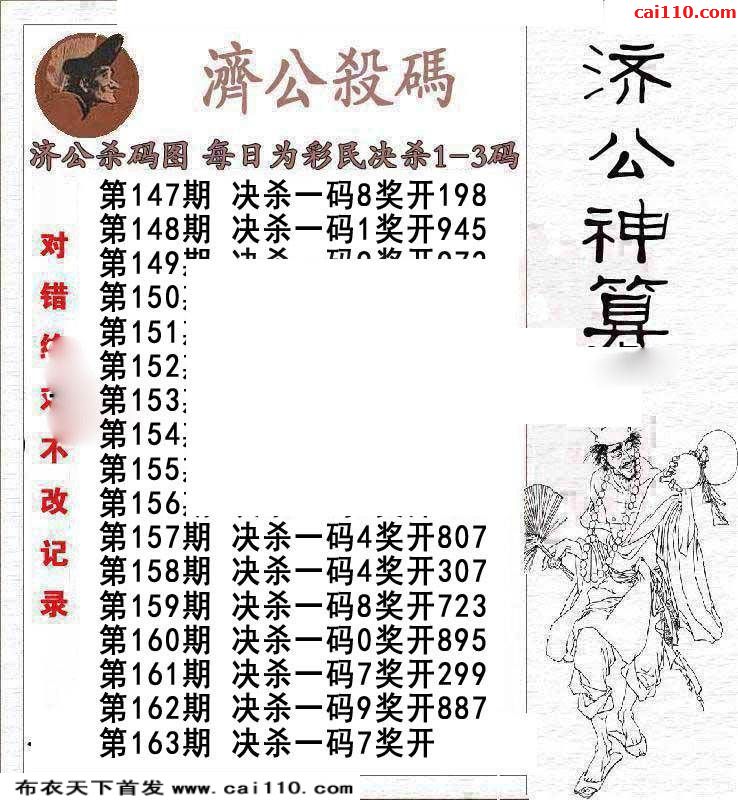 cai110.com
濟公殺碼
济公杀码图 每日为彩民决杀1-3码
第147期 决杀一码8奖开198
第148期 决杀一码1奖开945
第149期
第150
第151
第152
第153
第154
第155
第156
第157期 决杀一码4奖开807
第158期 决杀一码4奖开307
第159期 决杀一码8奖开723
第160期 决杀一码0奖开895
第161期 决杀一码7奖开299
第162期 决杀一码9奖开887
第163期 决杀一码7奖开
对错
不改记录
济公神算
布衣天下首发 www.cai110.com